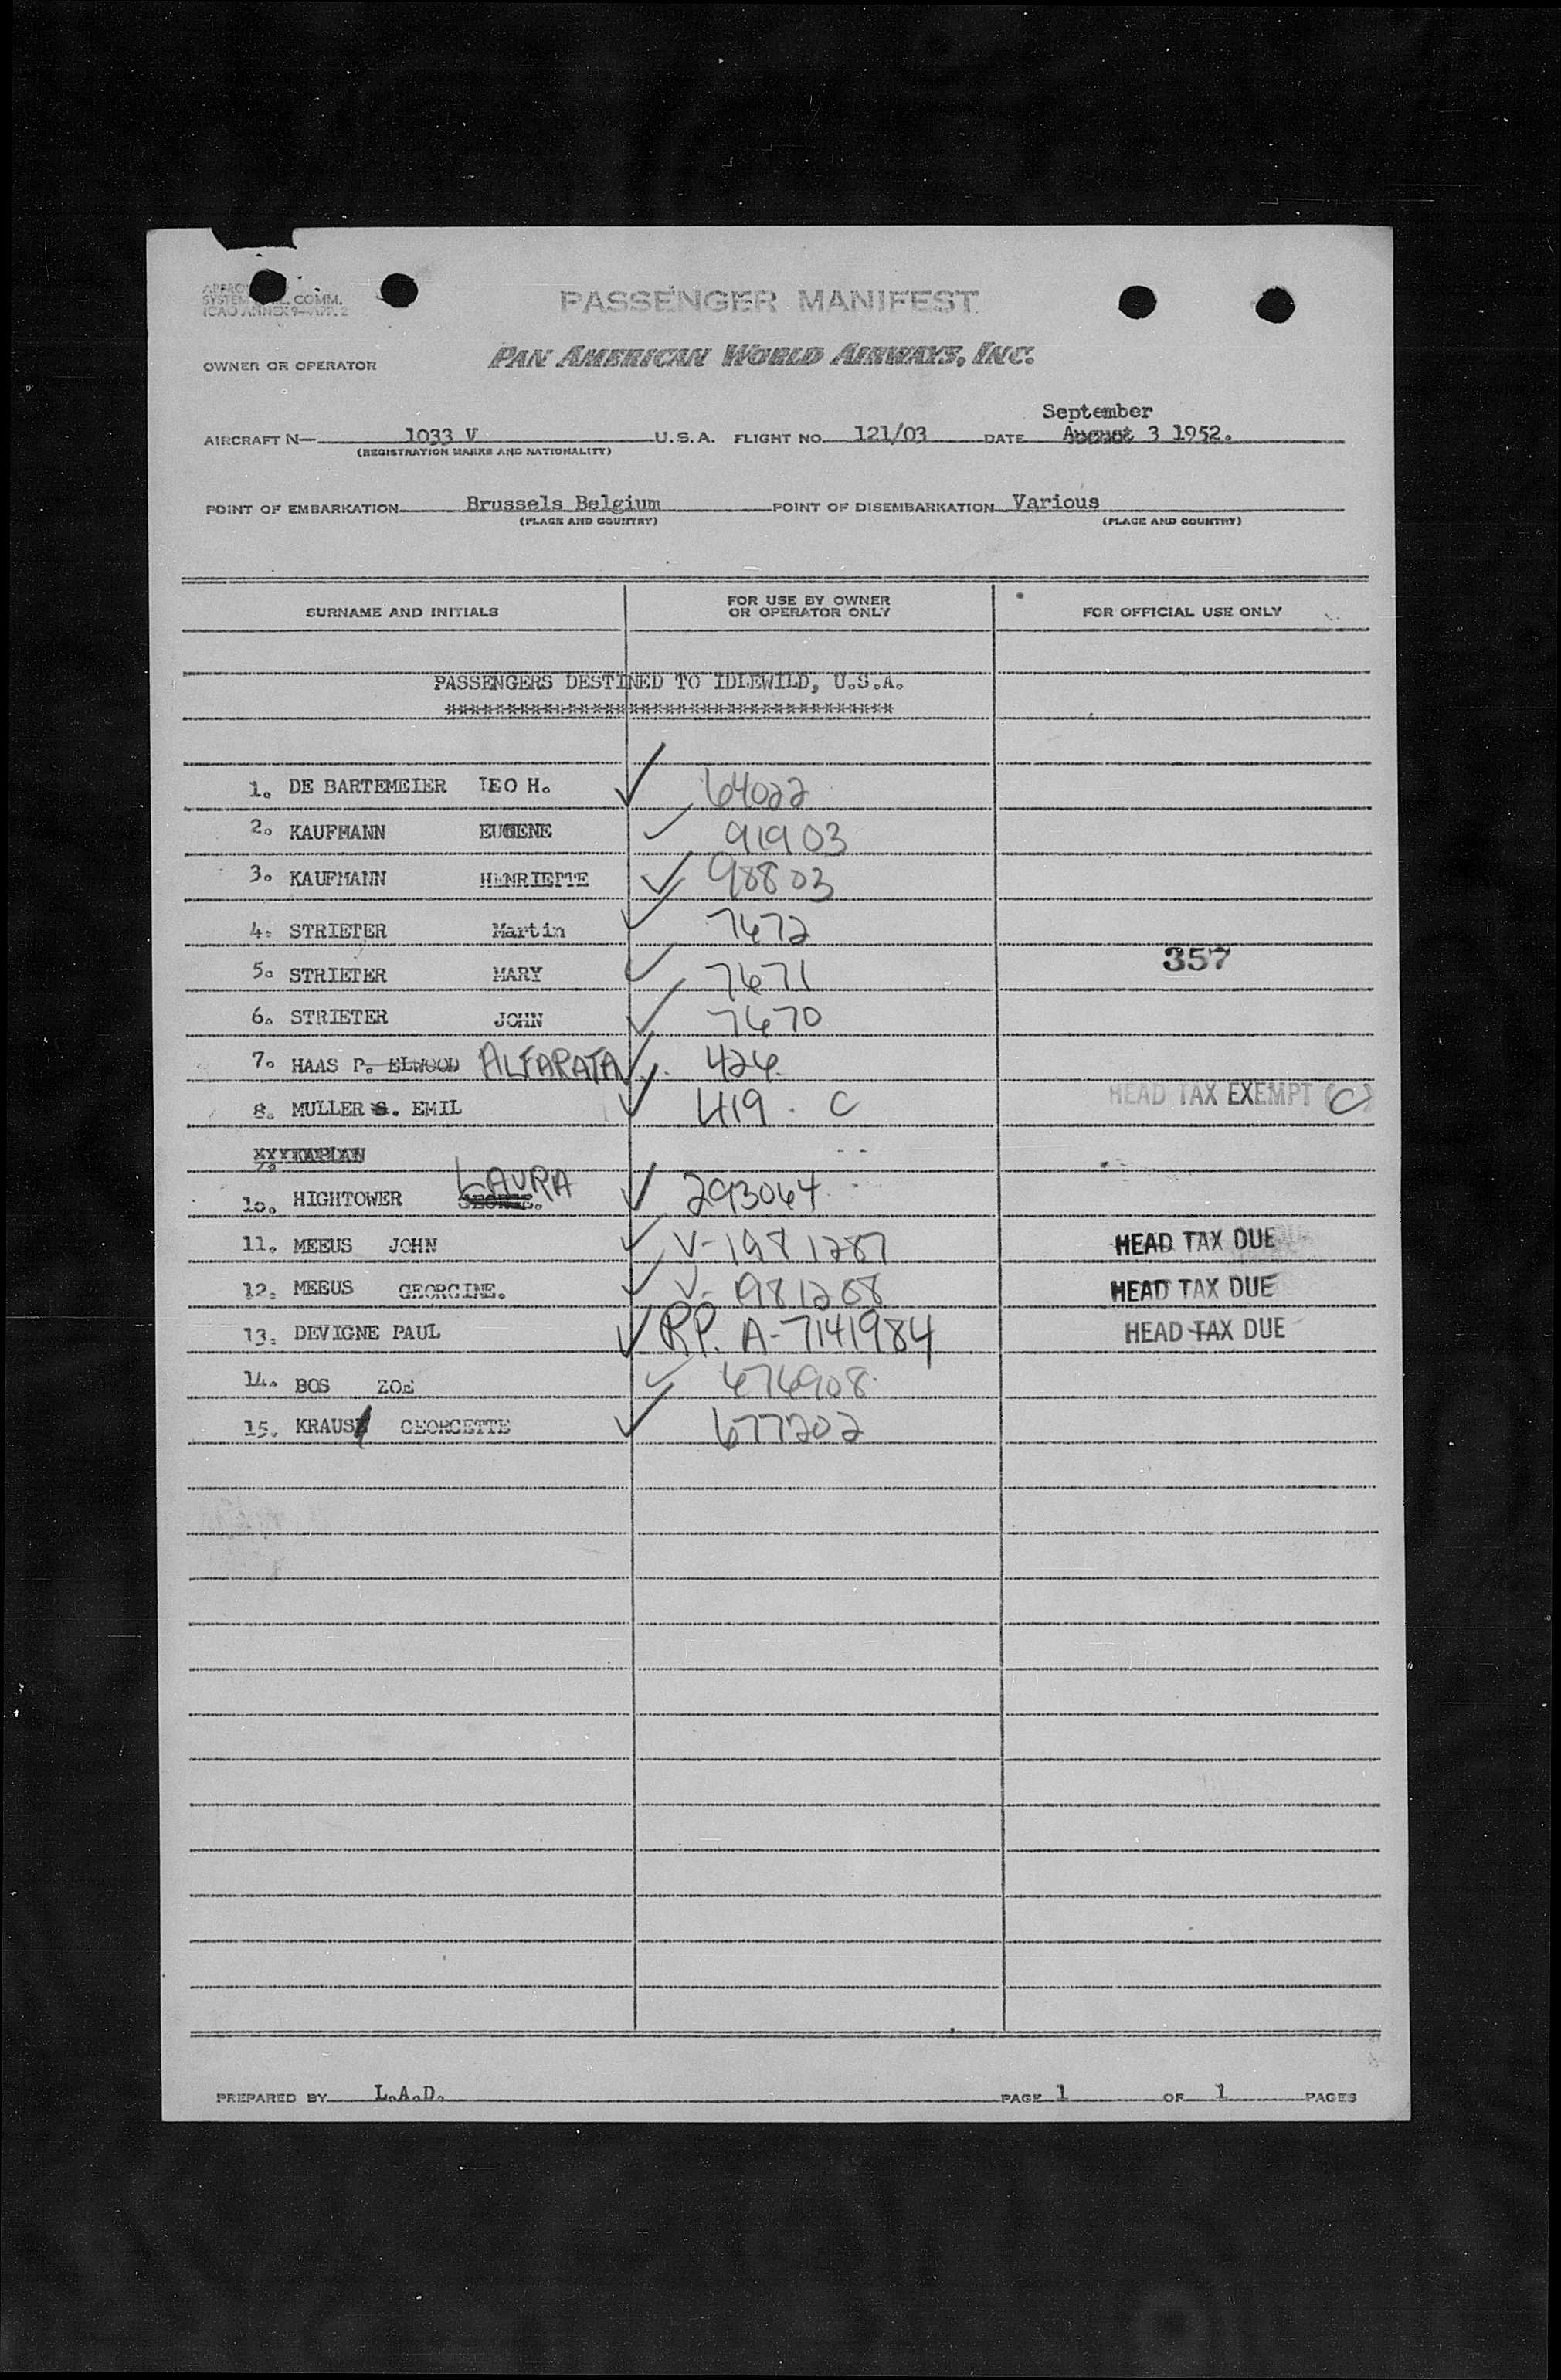 SYSTEM COMM.
ICAO ANNEX 9—APP. 2
PASSENGER MANIFEST
OWNER OR OPERATOR PAN AMERICAN WORLD AIRWAYS, INC.
September
AIRCRAFT N— 1033 V U.S.A. FLIGHT NO. 121/03 DATE August 3 1952.
(REGISTRATION MARKS AND NATIONALITY)
POINT OF EMBARKATION Brussels Belgium POINT OF DISEMBARKATION Various
(PLACE AND COUNTRY) (PLACE AND COUNTRY)
SURNAME AND INITIALS FOR USE BY OWNER OR OPERATOR ONLY FOR OFFICIAL USE ONLY
PASSENGERS DESTINED TO IDLEWILD, U.S.A.
1. DE BARTEMEIER LEO H. ✓ 64022
2. KAUFMANN EUGENE ✓ 91903
3. KAUFMANN HENRIETTE ✓ 98803
4. STRIETER Martin ✓ 7672
357
5. STRIETER MARY ✓ 7671
6. STRIETER JOHN ✓ 7670
7. HAAS P. ELWOOD ALFARATA ✓ 426.
8. MULLER S. EMIL ✓ 419. C HEAD TAX EXEMPT (C)
LAURA
10. HIGHTOWER GEORGE. ✓ 293064
11. MEEUS JOHN ✓ V-1981287 HEAD TAX DUE
12. MEEUS GEORGINE. ✓ V-1981288 HEAD TAX DUE
13. DEVIGNE PAUL ✓ R.P. A-7141984 HEAD TAX DUE
14. BOS ZOE ✓ 676908
15. KRAUS GEORGETTE ✓ 677202
PREPARED BY L.A.D. PAGE 1 OF 1 PAGES